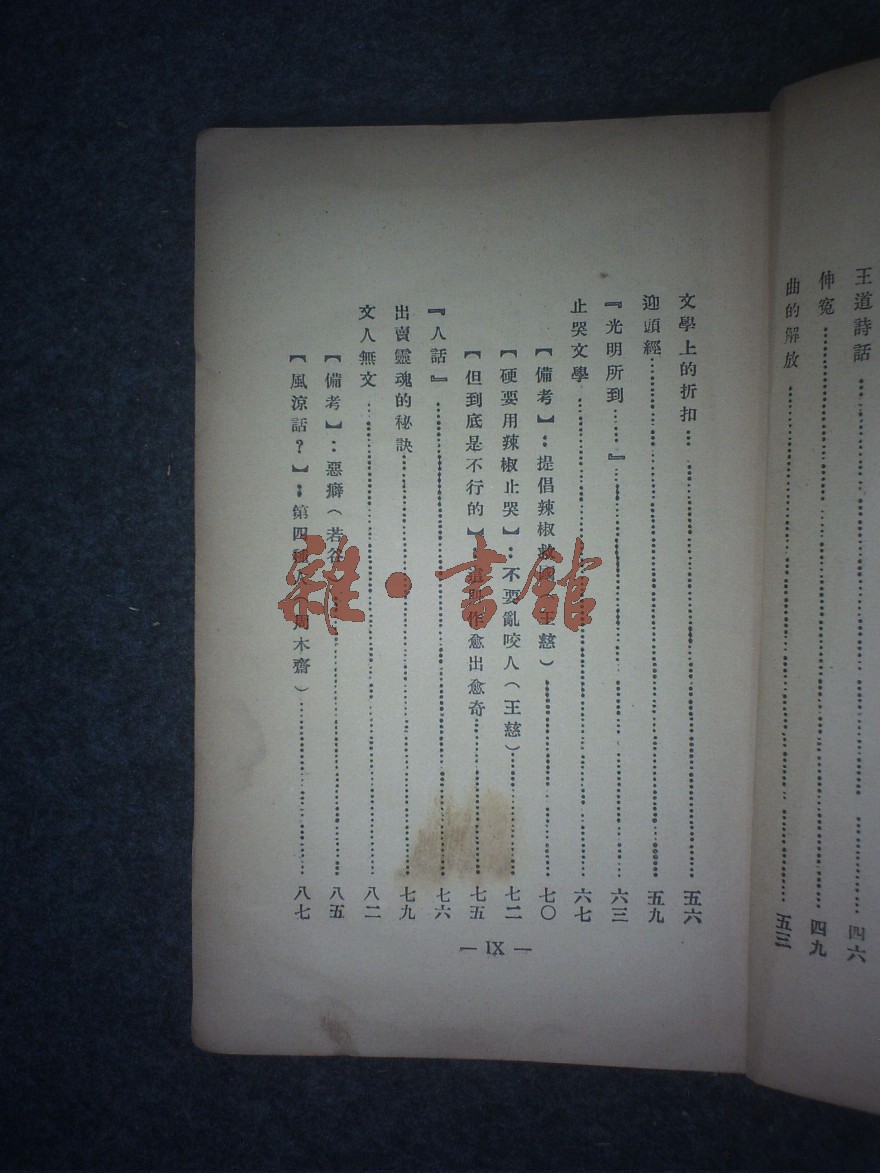 王道詩話……四六
伸冤……四九
曲的解放……五三
文學上的折扣……五六
迎頭經……五九
『光明所到……』……六三
止哭文學……六七
【備考】：提倡辣椒救國 王慈）……七〇
【硬要用辣椒止哭】：不要亂咬人（王慈）……七二
【但到底是不行的】：這叫作愈出愈奇……七五
『人話』……七六
出賣靈魂的秘訣……七九
文人無文……八二
【備考】：惡癖（若谷……八五
【風涼話？】：第四種人（周木齋）……八七
— IX —
雜·書館